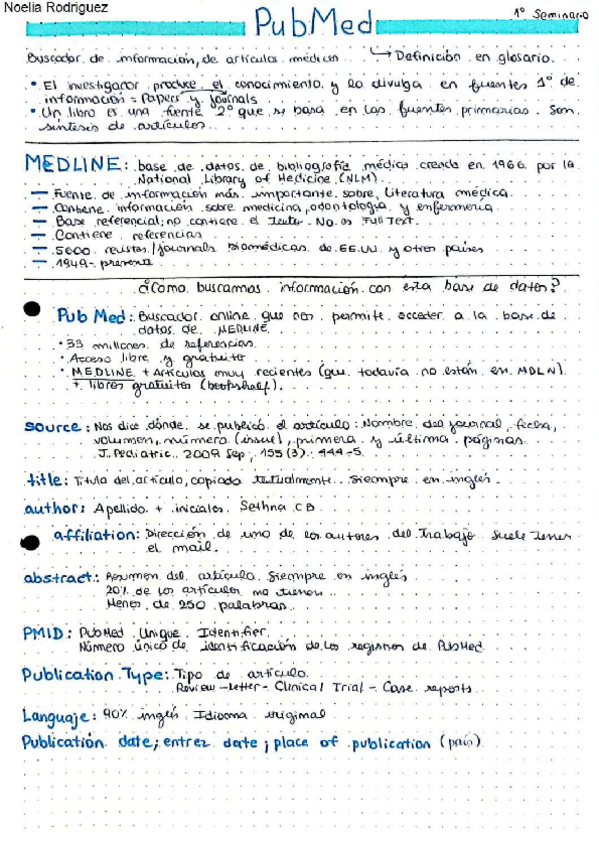 Noelia Rodriguez
PubMed
1º Seminario
Buscador de información, de artículos médicos → Definición en glosario.
• El investigador produce el conocimiento y lo divulga en fuentes 1º de
información = Papers y journals
• Un libro es una fuente 2º que se basa en las fuentes primarias. Son
síntesis de artículos.
MEDLINE: base de datos de bibliografía médica creada en 1966 por la
National Library of Medicine (NLM)
— Fuente de información más importante sobre literatura médica.
— Contiene información sobre medicina, odontología y enfermería
— Base referencial; no contiene el texto. No es Full Text.
— Contiene referencias
— 5000 revistas/journals biomédicas de EE.UU y otros países
— 1949- presente
¿Como buscamos información con esta base de datos?
PubMed: Buscador online que nos permite acceder a la base de
datos de MEDLINE
• 33 millones de referencias
• Acceso libre y gratuito
• MEDLINE + Artículos muy recientes (que todavía no están en MDLN)
+ libros gratuitos (bookshelf).
source: Nos dice dónde se publicó el artículo: Nombre del journal, fecha,
volumen, número (issue), primera y última páginas
J. Pediatric. 2009 Sep; 155 (3): 444-5
title: Título del artículo, copiado textualmente. Siempre en inglés.
author: Apellido + iniciales Sethna CB
affiliation: Dirección de uno de los autores del trabajo suele tener
el mail.
abstract: Resumen del artículo. Siempre en inglés
20% de los artículos no tienen
Menos de 250 palabras
PMID: PubMed Unique Identifier.
Número único de identificación de los registros de PubMed
Publication Type: Tipo de artículo.
Review - Letter - Clinical Trial - Case reports
Languaje: 90% inglés Idioma original
Publication date; entrez date; place of publication (país)